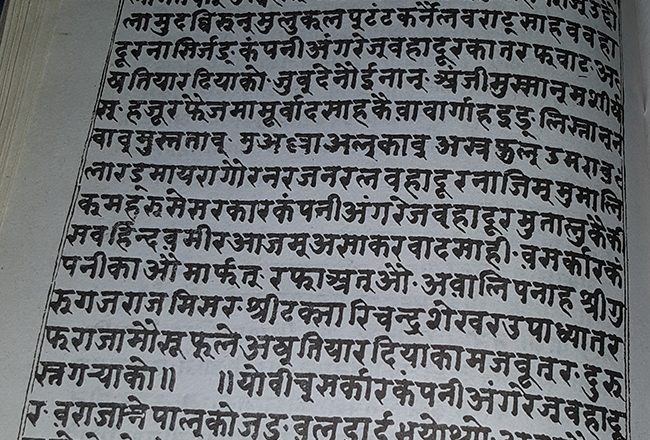 लामुदब्बिरुनूमुलुकूल पुटंटकर्नैलवराट्साहववहा
दूरनासिर्जङ्कंपनीअंगरेजूवहादूरकातरफवाट अ
षतियारदियाको जुवूदेनोईनानू अजीमुस्सानूमशी
सू हजूर फैजमासूर्वादसाहकैवावार्गाहइङ्लिस्ता
वाव्मुस्तताव् मुअल्लाअल्काव् अस्रफुलू उमरा
लारड्मायरागोरनरजनरलवहादूरनाजिममुमालि
कूमहरूसेसरकारकंपनीअंगरेजवहादूरमुतालुकैकी
सवर्हिन्दवमीरआजमूअसाकरवादसाही· वसर्कारकं
पनीका औ मार्फतू रफाअतूऔ· अवालिपनाह श्रीग
रुगजराजमिसर· श्रीटक्सारिचन्द्रशेखरउपाध्यातर
फराजामौसूफूले अषतियारदियाकामजवूतर· दुरु
स्तगर्‍याको॥ ॥योवीचसर्कारकंपनीअंगरेजूवहादू
र· वराजानेपालूकोजङ्· वलडाईभयोथ्यो·